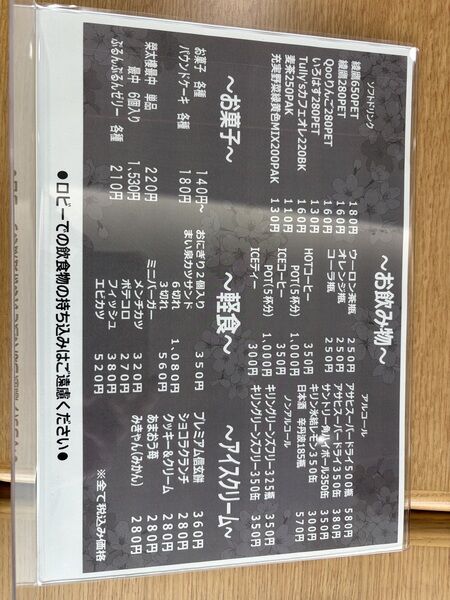 ～お飲み物～
ソフトドリンク
綾鷹650PET 180円
綾鷹280PET 160円
Qooりんご280PET 160円
いろはす280PET 130円
Tully'sカフェオレ220BK 160円
麦茶250PAK 110円
充実野菜緑黄色MIX200PAK 130円
ウーロン茶瓶 250円
オレンジ瓶 250円
コーラ瓶 250円
HOTコーヒー 350円
POT(5杯分) 1,000円
ICEコーヒー
POT(5杯分) 1,000円
ICEティー 300円
アルコール
アサヒスーパードライ550瓶 580円
アサヒスーパードライ350缶 380円
サントリー角ハイボール350缶
キリン氷結レモン350缶
日本酒 辛丹波185瓶 570円
ノンアルコール
キリングリーンズフリー325瓶
キリングリーンズフリー350缶 350円
～お菓子～
お菓子 各種 140円～
パウンドケーキ 各種 180円
榮太樓最中 単品 220円
最中 6個入り 1,530円
ぷるんぷるんゼリー 各種 210円
～軽食～
おにぎり2個入り 350円
まい泉カツサンド
6切れ 1,080円
3切れ 560円
ミニバーガー
メンチカツ 320円
ポテコロ 270円
フィッシュ 380円
エビカツ 520円
～アイスクリーム～
プレミアム信玄餅 360円
ショコラクランチ 280円
クッキー＆クリーム 280円
あまおう苺 280円
みきゃん(みかん) 280円
※全て税込み価格
●ロビーでの飲食物の持ち込みはご遠慮ください●